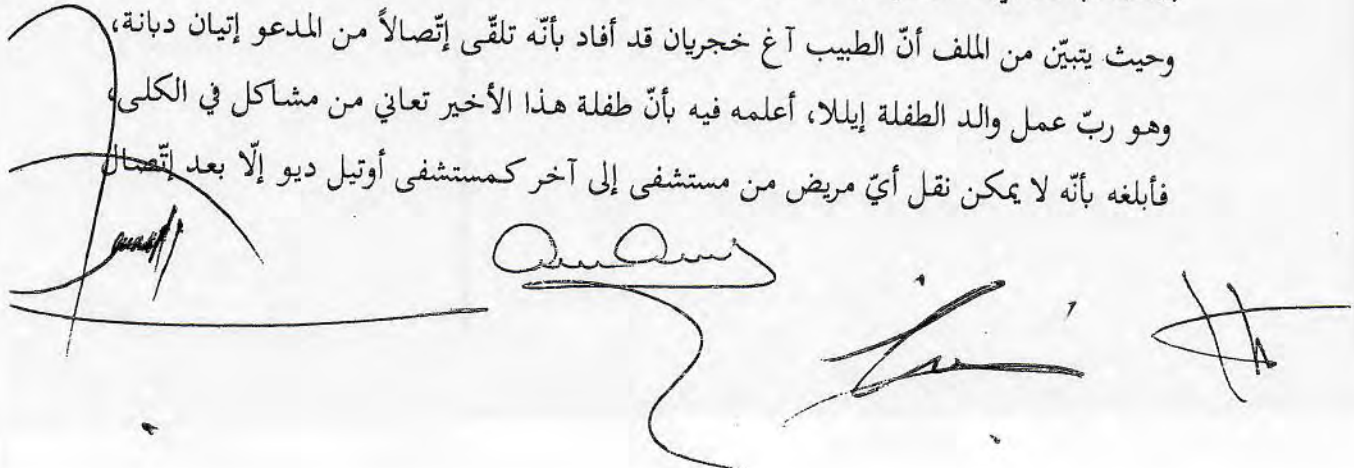 وحيث يتبيّن من الملف أنّ الطبيب آغ خجريان قد أفاد بأنّه تلقّى إتّصالاً من المدعو إتيان دبانة،
وهو ربّ عمل والد الطفلة إيللا، أعلمه فيه بأنّ طفلة هذا الأخير تعاني من مشاكل في الكلى،
فأبلغه بأنّه لا يمكن نقل أيّ مريض من مستشفى إلى آخر كمستشفى أوتيل ديو إلّا بعد إتّصال